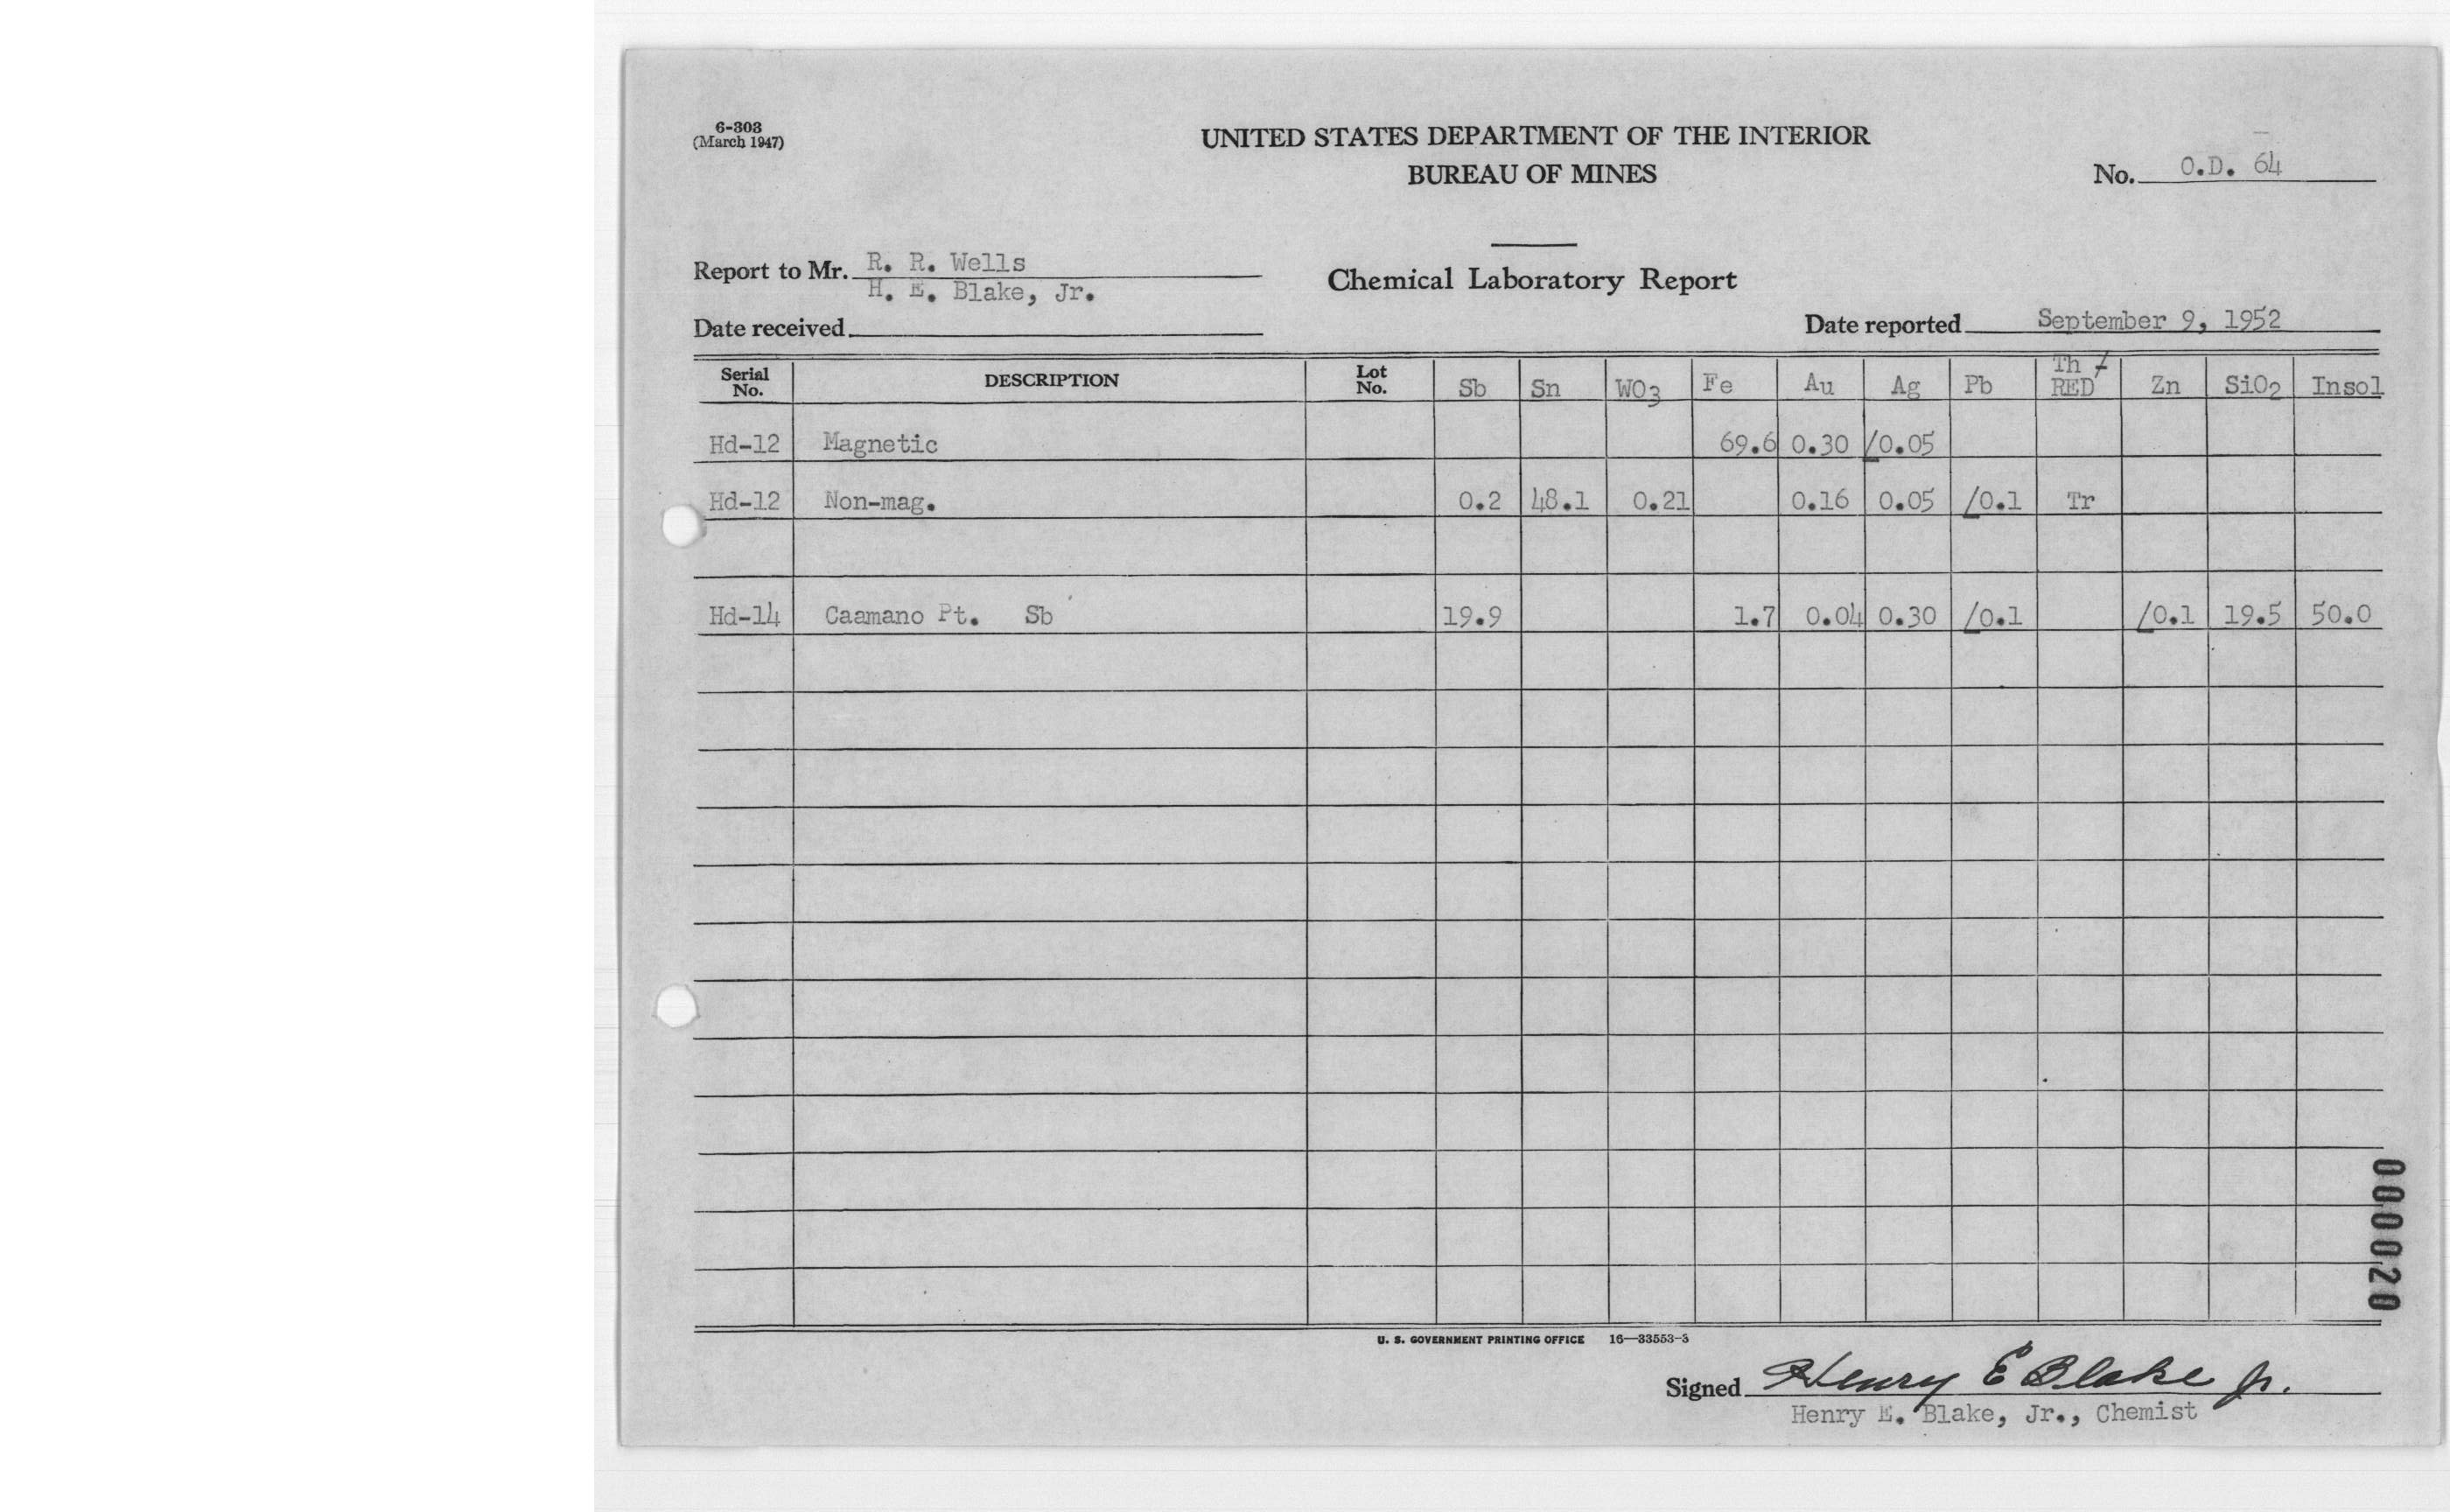 6-303
(March 1947)
UNITED STATES DEPARTMENT OF THE INTERIOR
BUREAU OF MINES
No. O.D. 64
Report to Mr. R. R. Wells
H. E. Blake, Jr.
Chemical Laboratory Report
Date received
Date reported September 9, 1952
Serial No. DESCRIPTION Lot No. Sb Sn WO3 Fe Au Ag Pb Th ≠ RED Zn SiO2 Insol
Hd-12 Magnetic 69.6 0.30 /0.05
Hd-12 Non-mag. 0.2 48.1 0.21 0.16 0.05 /0.1 Tr
Hd-14 Caamano Pt. Sb 19.9 1.7 0.04 0.30 /0.1 /0.1 19.5 50.0
000020
U. S. GOVERNMENT PRINTING OFFICE 16—33553-3
Signed Henry E Blake Jr.
Henry E. Blake, Jr., Chemist